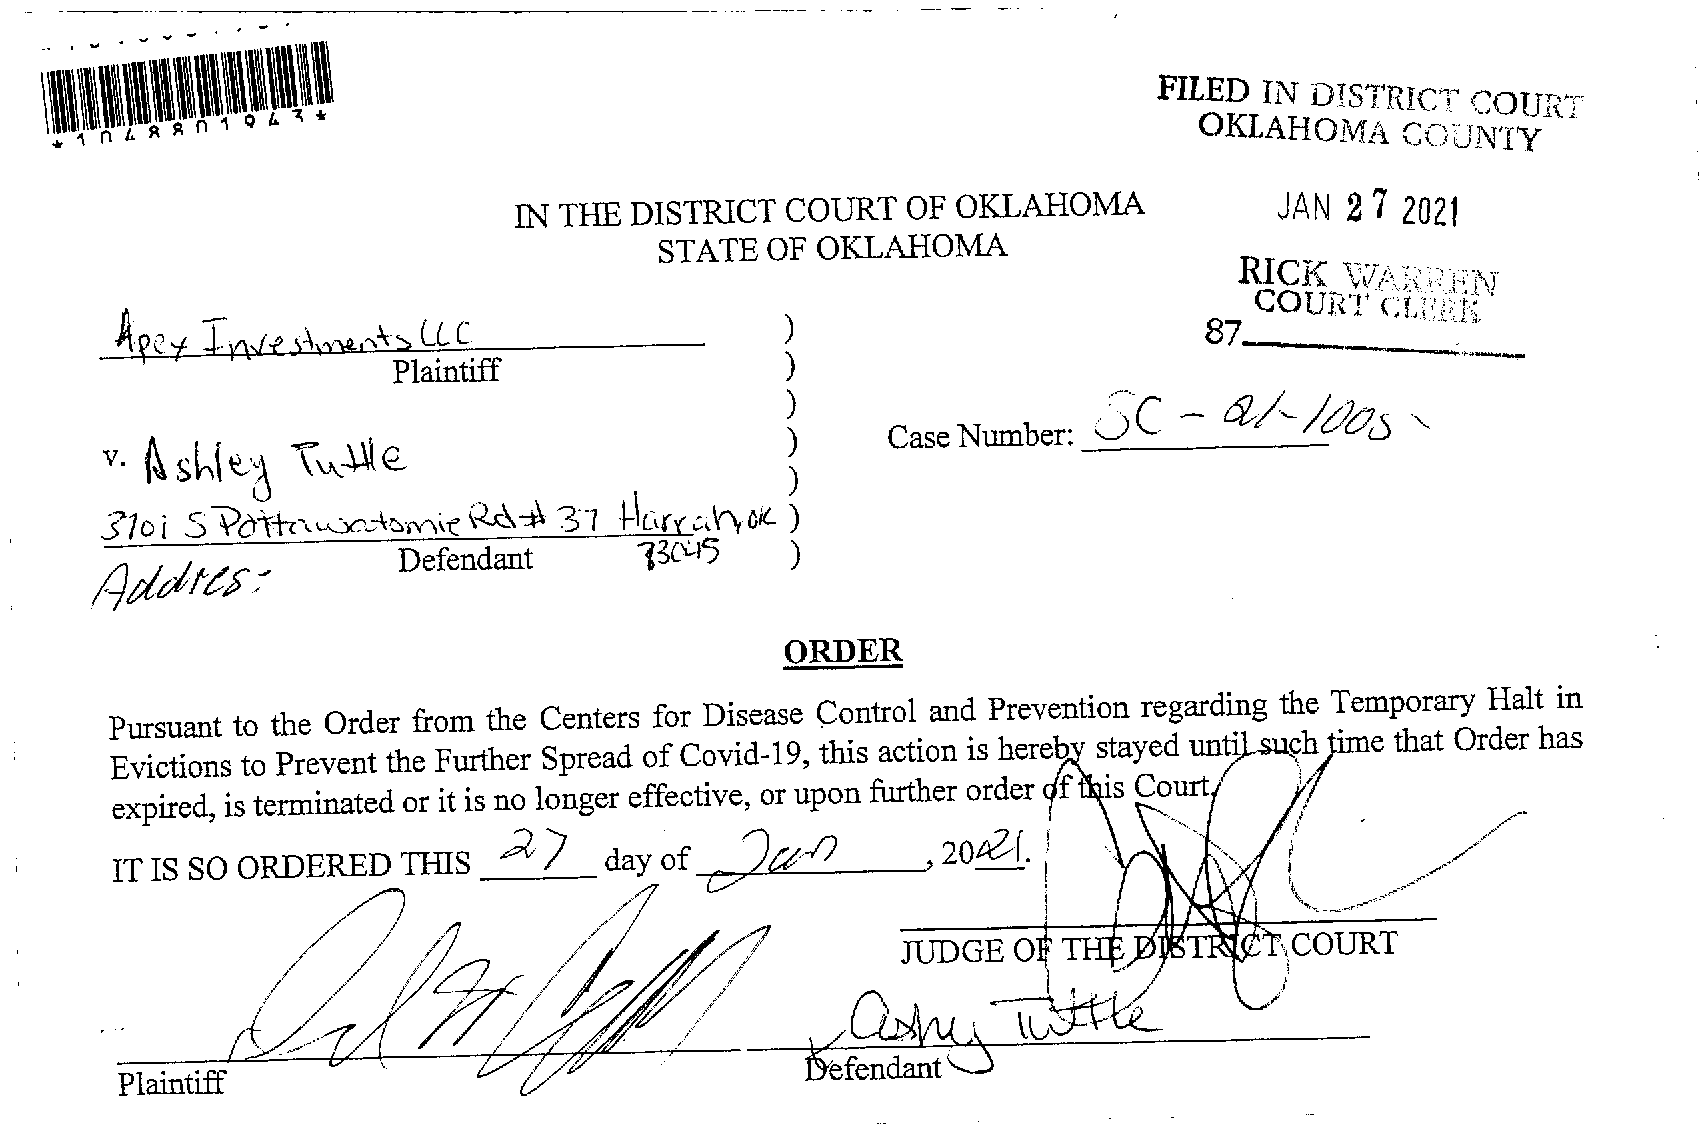 *1048801943*
FILED IN DISTRICT COURT
OKLAHOMA COUNTY
JAN 27 2021
RICK WARREN
COURT CLERK
87
IN THE DISTRICT COURT OF OKLAHOMA
STATE OF OKLAHOMA
Apex Investments LLC )
Plaintiff )
)
Case Number: SC-21-1005
v. Ashley Tuttle )
)
3701 S Pottawatomie Rd # 37 Harrah, OK )
Defendant 73045 )
Addres:
ORDER
Pursuant to the Order from the Centers for Disease Control and Prevention regarding the Temporary Halt in
Evictions to Prevent the Further Spread of Covid-19, this action is hereby stayed until such time that Order has
expired, is terminated or it is no longer effective, or upon further order of this Court.
IT IS SO ORDERED THIS 27 day of Jan, 2021.
JUDGE OF THE DISTRICT COURT
Ashy Tuttle
Plaintiff Defendant